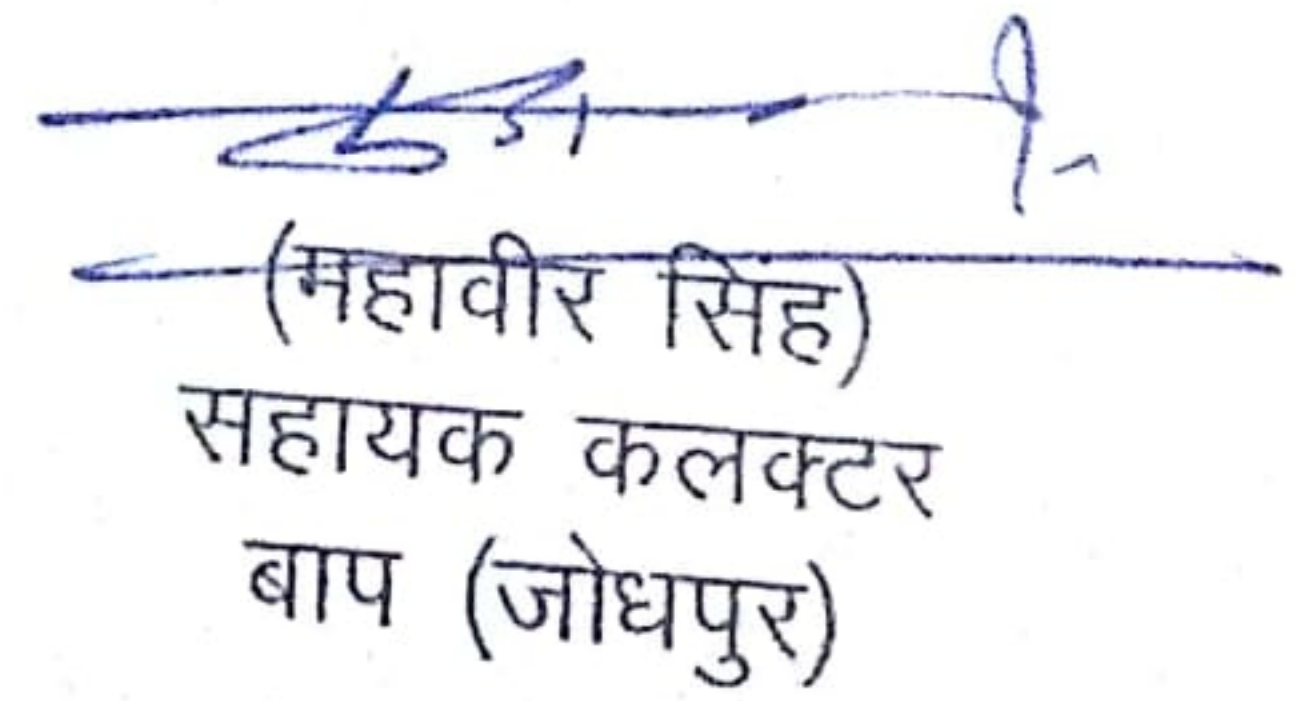 (महावीर सिंह)
सहायक कलक्टर
बाप (जोधपुर)